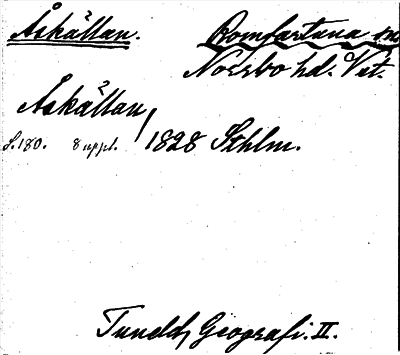 Åskällan. Romfartuna sn
Norrbo hd. Vst.
Åskällan,
s. 180. 8 uppl. 1828 Sthlm.
Tuneld, Geografi. II.